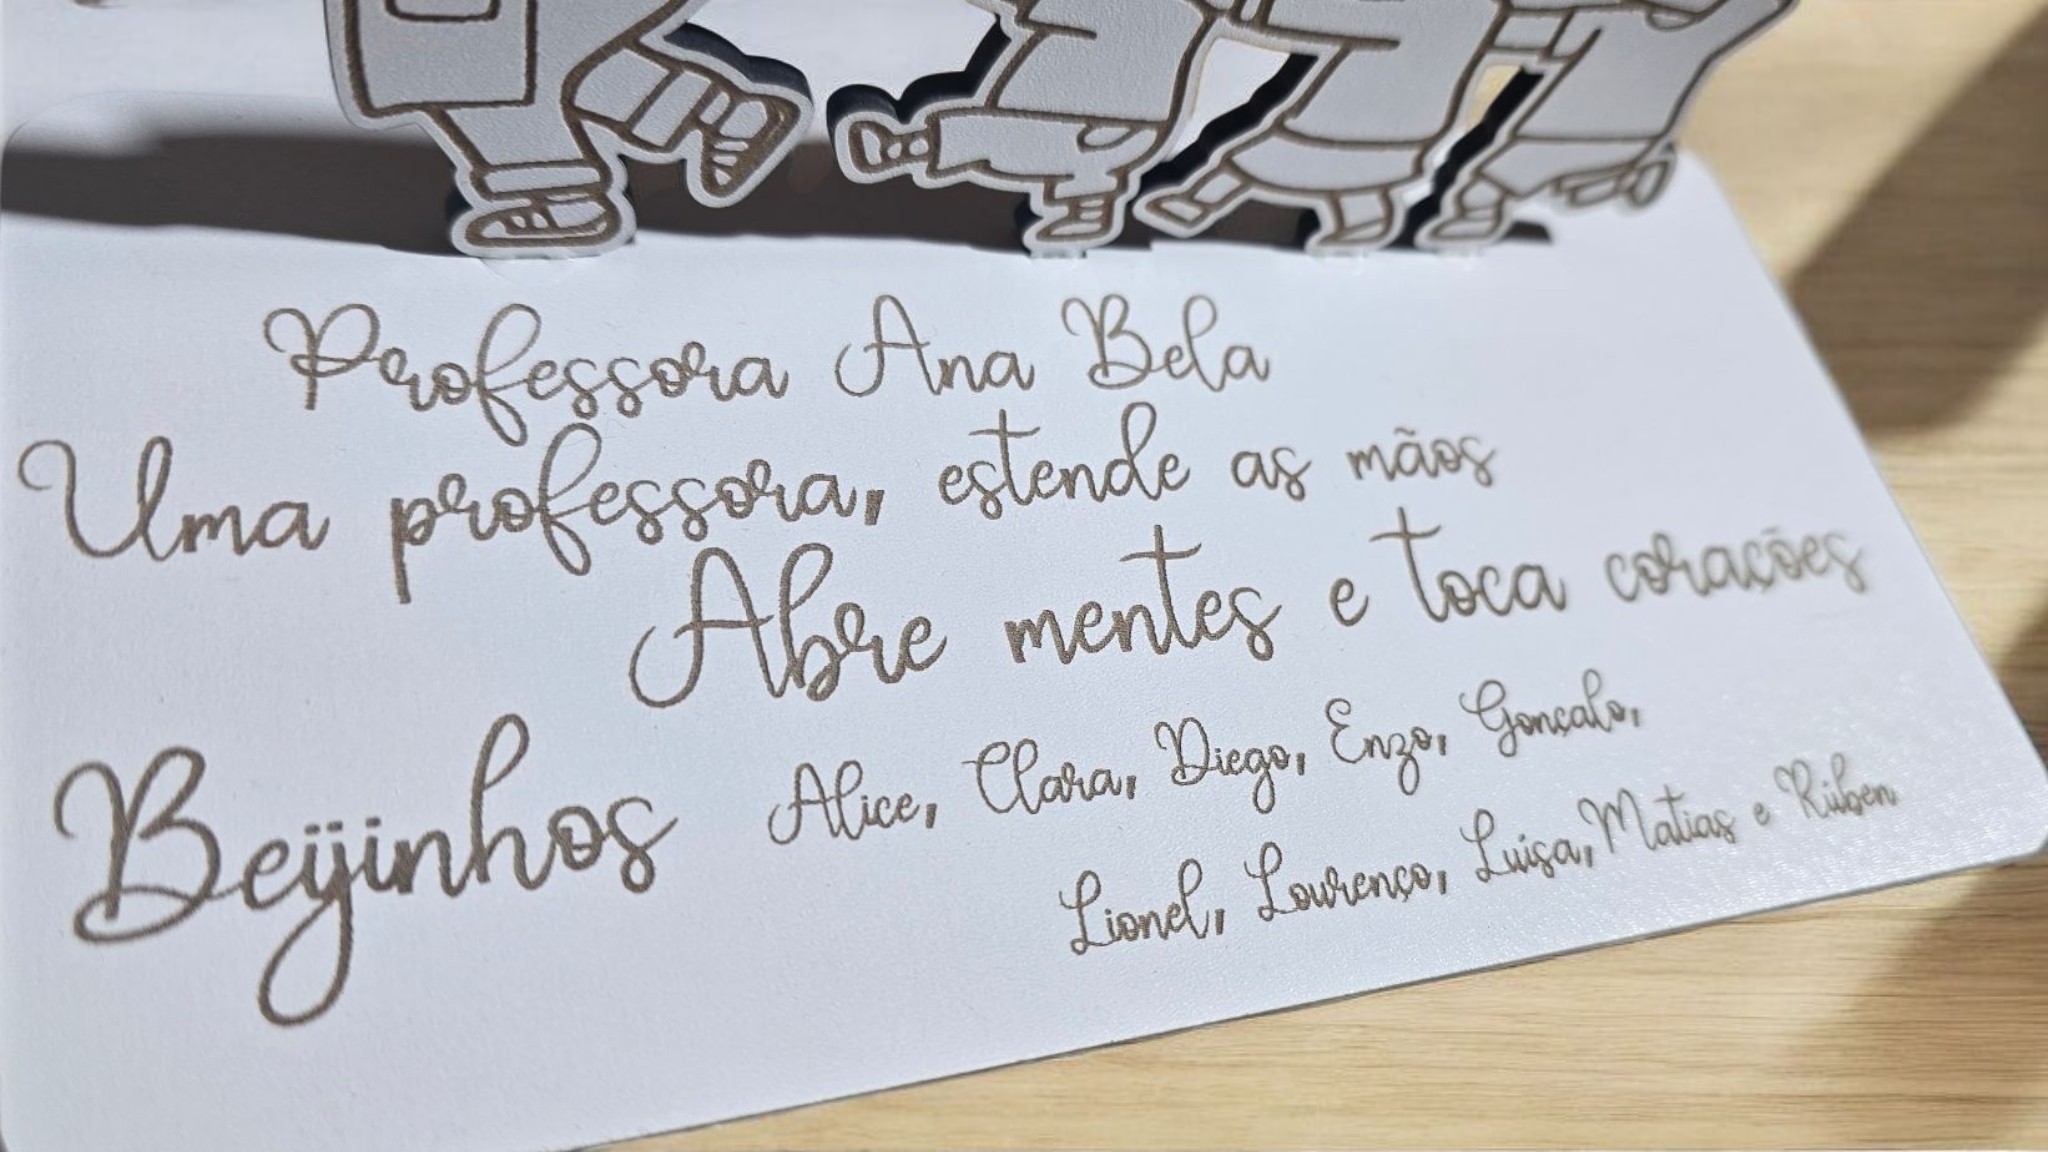 Professora Ana Bela
Uma professora, estende as mãos
Abre mentes e toca corações
Beijinhos Alice, Clara, Diego, Enzo, Gonçalo,
Lionel, Lourenço, Luísa, Matias e Rúben